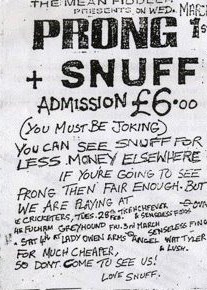 THE MEAN FIDDLER
PRESENTS ON WED. MARCH
PRONG 1st
+ SNUFF
ADMISSION £6.00
(YOU MUST BE JOKING)
YOU CAN SEE SNUFF FOR
LESS MONEY ELSEWHERE
IF YOU'RE GOING TO SEE
PRONG THEN FAIR ENOUGH. BUT
WE ARE PLAYING AT
CRICKETERS, TUES. 28th FEB. & SENSELESS THINGS
FULHAM GREYHOUND FRI. 3rd MARCH
SAT 4th AT LADY OWEN ARMS ANGEL WAT TYLER
& LUSH.
FOR MUCH CHEAPER,
SO DONT COME TO SEE US!
LOVE SNUFF.